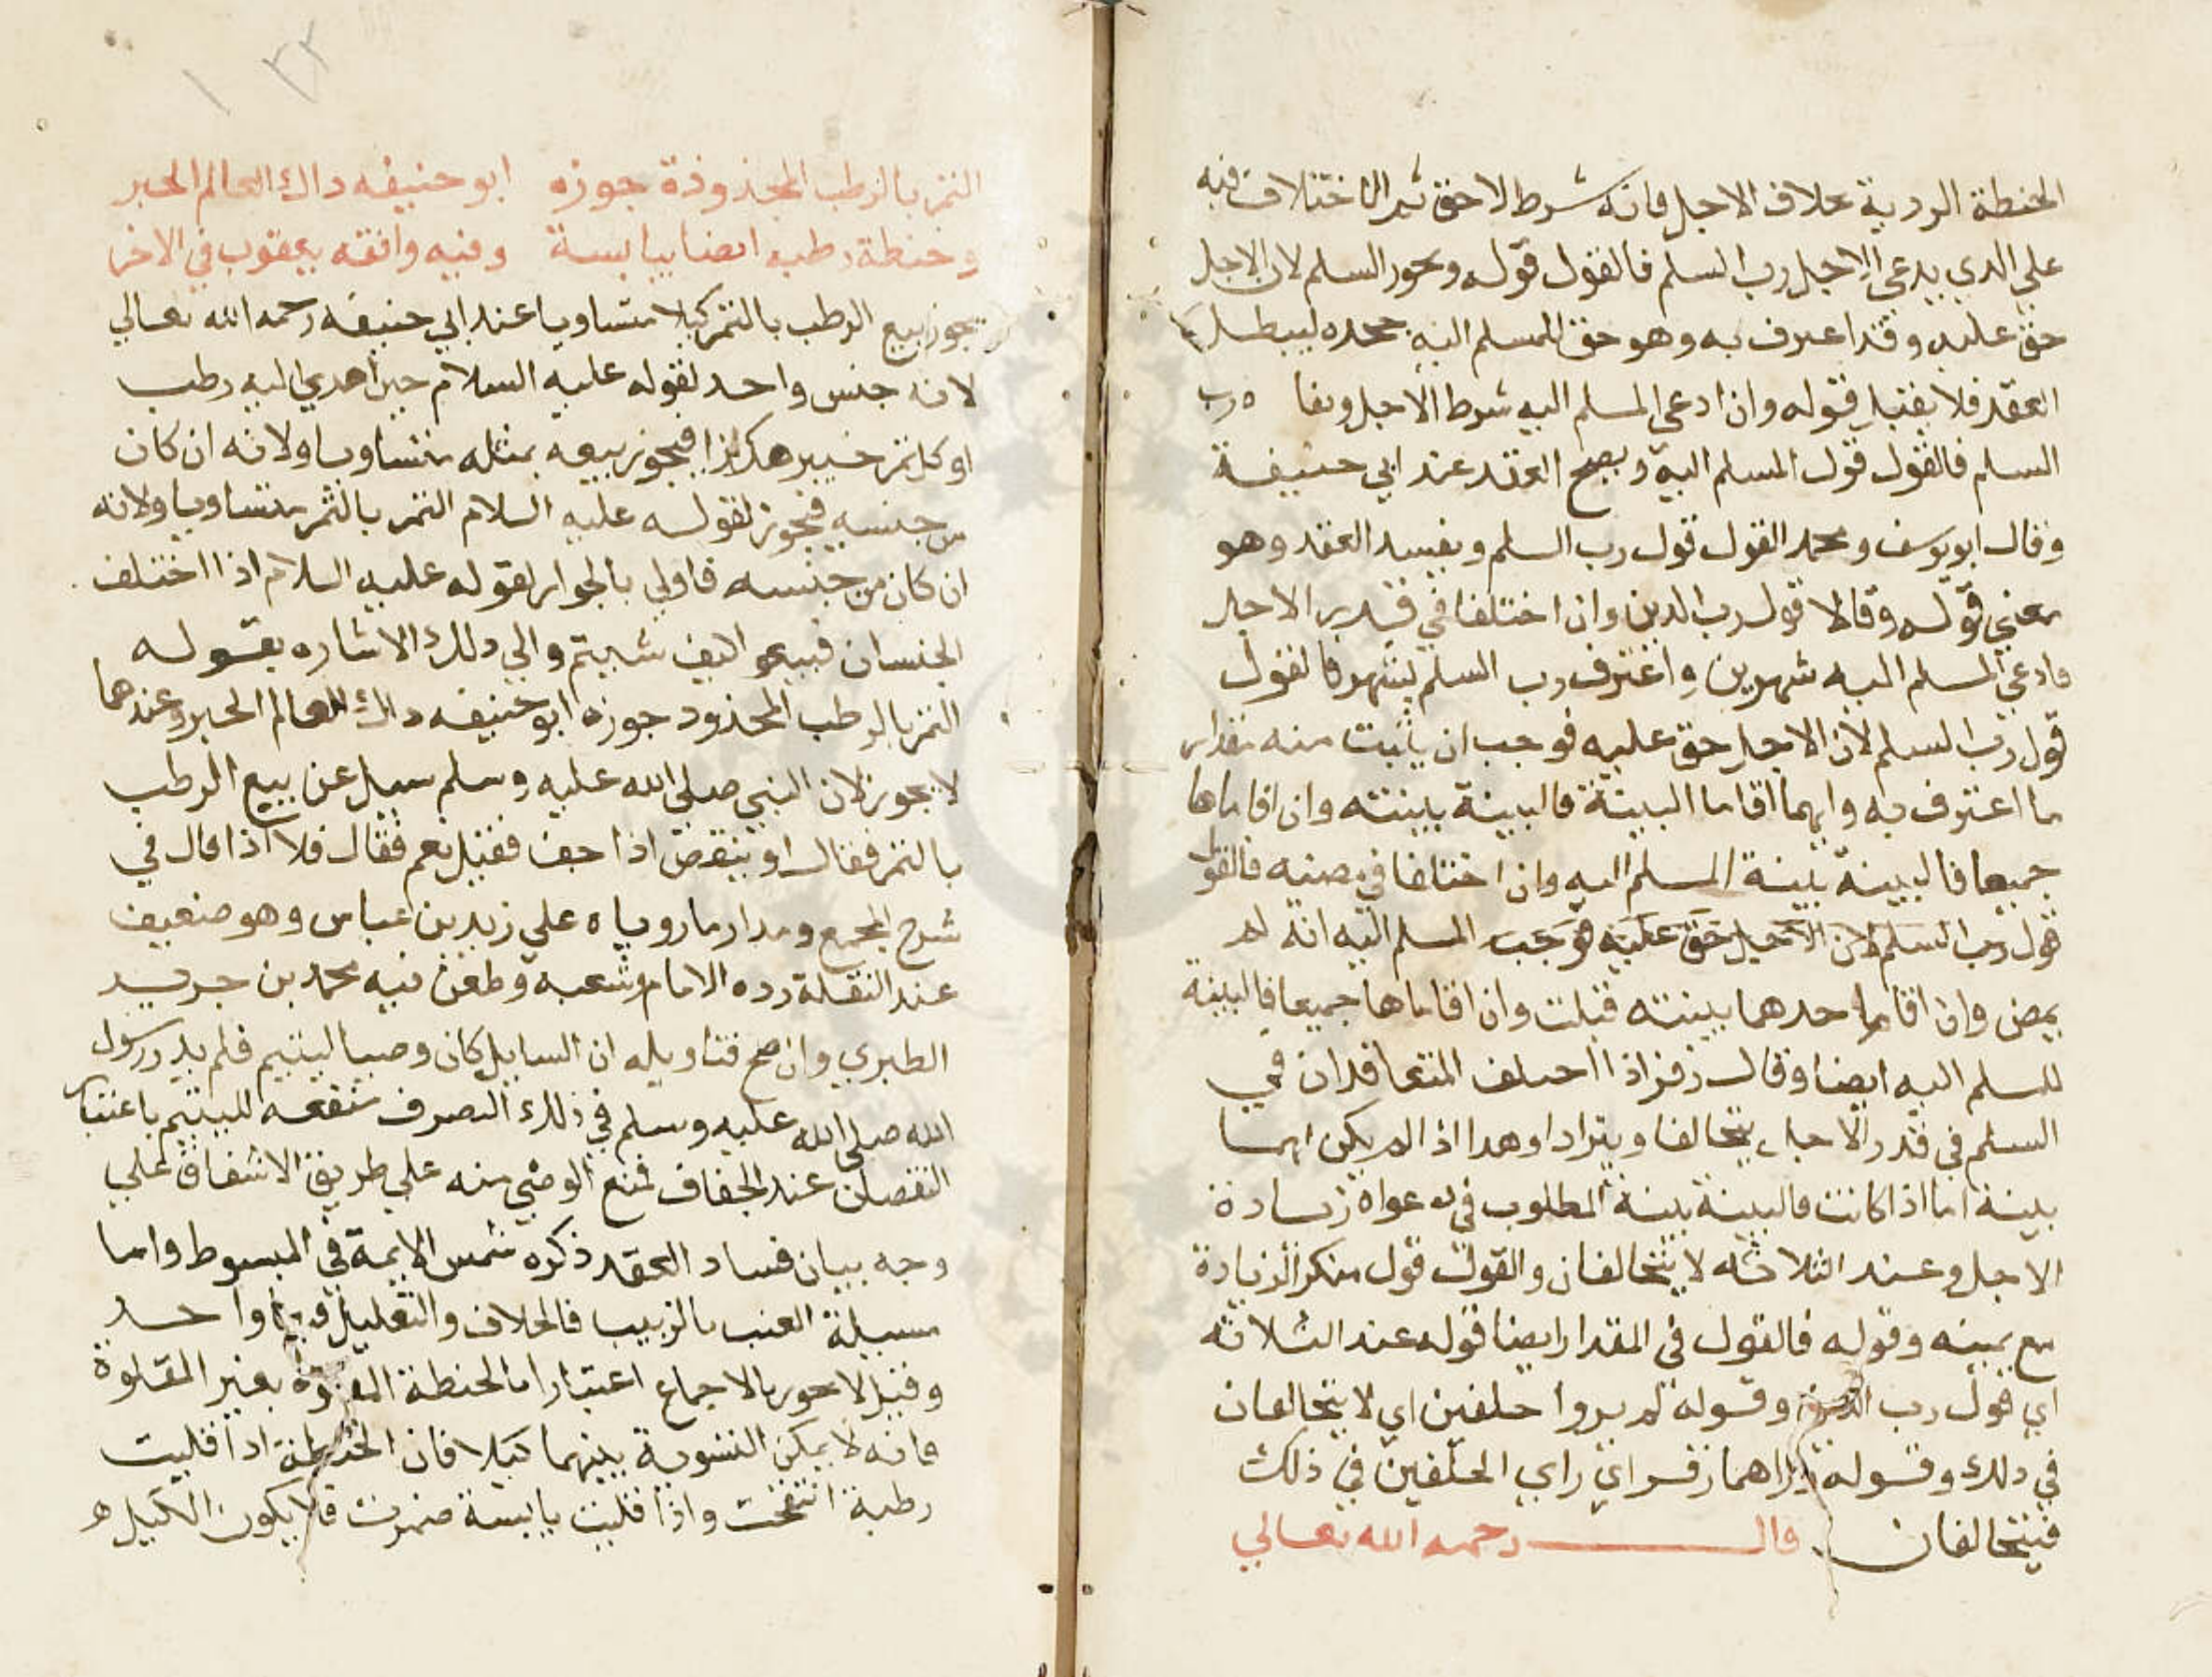 الحنطة الردية بخلاف الاجل فانه شرط لاحق ثم الاختلاف فيه
علي الذي يدعي الاجل رب السلم فالقول قوله ويجوز السلم لان الاجل
حق عليه وقد اعترف به وهو حق للمسلم اليه جحده ليبطل
العقد فلا يقبل قوله وان ادعي المسلم اليه شرط الاجل ونفاه رب
السلم فالقول قول المسلم اليه ويصح العقد عند ابي حنيفة
وقال ابو يوسف ومحمد القول قول رب السلم ويفسد العقد وهو
معني قوله وقالا قول رب الدين وان اختلفا في قدر الاجل
فادعي المسلم اليه شهرين واعترف رب السلم بشهر فالقول
قول رب السلم لان الاجل حق عليه فوجب ان يثبت منه مقدار
ما اعترف به وايهما اقاما البينة فالبينة بينته وان اقاماها
جميعا فالبينة بينة المسلم اليه وان اختلفا في مضيه فالقول
قول رب السلم لان الاجل حق عليه فوجب المسلم اليه انه لم
يمض وان اقام احدهما بينته قبلت وان اقاماها جميعا فالبينة
للمسلم اليه ايضا وقال زفر اذا اختلف المتعاقدان في
السلم في قدر الاجل يتحالفا ويترادا وهذا اذا لم يكن لهما
بينة اما اذا كانت فالبينة بينة المطلوب في دعواه زيادة
الاجل وعند الثلاثه لا يتحالفان والقول قول منكر الزيادة
مع يمينه وقوله فالقول في المقدار ايضا قوله عند الثلاثه
اي قول رب الدين وقوله لم يروا حلفين اي لا يتحالفان
في ذلك وقوله يراهما زفر اي راي الحلفين في ذلك
فيتحالفان قال رحمه الله تعالي
١٣٢
التمر بالرطب المجذوذة جوزه ابو حنيفه ذاك العالم الحبر
وحنطة رطب ايضا بيابسة وفيه وافقه يعقوب في الاخر
يجوز بيع الرطب بالتمر كيلا متساويا عند ابي حنيفه رحمه الله تعالي
لانه جنس واحد لقوله عليه السلام حين اهدي اليه رطب
او كل تمر خيبر هكذا فيجوز بيعه بمثله متساويا ولانه ان كان
من جنسه فيجوز لقوله عليه السلام التمر بالتمر متساويا ولانه
ان كان من جنسه فاولي بالجواز لقوله عليه السلام اذا اختلف
الجنسان فبيعوا كيف شيتم والي ذلك الاشاره بقوله
التمر بالرطب المجذوذ جوزه ابو حنيفه ذاك العالم الحبر وعندهما
لا يجوز لان النبي صلي الله عليه وسلم سيل عن بيع الرطب
بالتمر فقال او ينقص اذا جف فقيل نعم فقال فلا اذا قال في
شرح المجمع ومدار ما روياه علي زيد بن عباس وهو ضعيف
عند النقلة رده الامام شعبه وطعن فيه محمد بن جرير
الطبري وان صح فتاويله ان السايل كان وصيا ليتيم فلم ير رسول
الله صلي الله عليه وسلم في ذلك التصرف منفعه لليتيم باعتبار
النقصان عند الجفاف فمنع الوصي منه علي طريق الاشفاق لا علي
وجه بيان فساد العقد ذكره شمس الايمة في المبسوط واما
مسيلة العنب بالزبيب فالخلاف والتعليل فيهما واحد
وقيل لا يجوز بالاجماع اعتبارا بالحنطة المقلوة بغير المقلوة
فانه لا يمكن التسوية بينهما كيلا فان الحنطة اذا قليت
رطبة انتفخت واذا قليت يابسة ضمرت فلا يكون الكيل